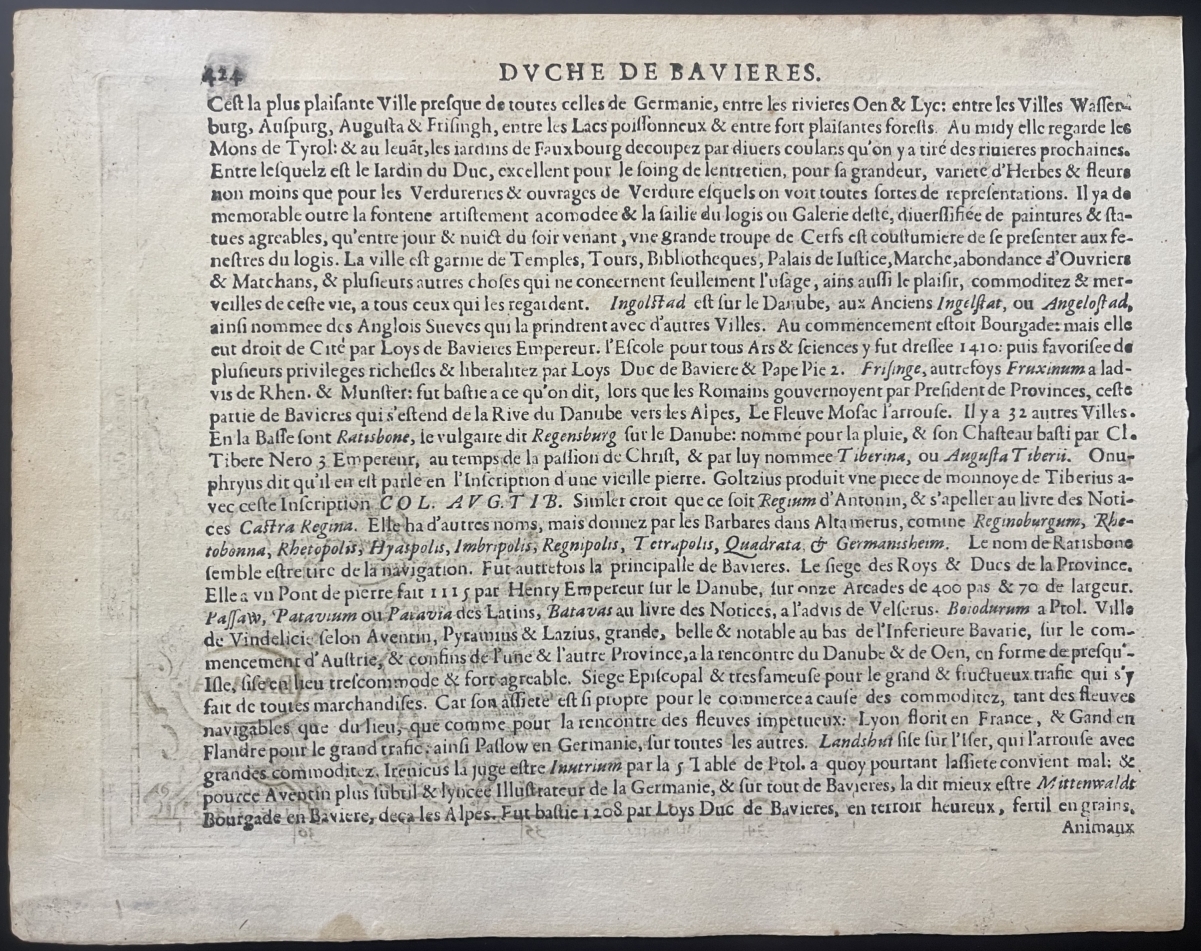 424 DVCHE DE BAVIERES.
C'eſt la plus plaiſante Ville preſque de toutes celles de Germanie, entre les rivieres Oen & Lyc: entre les Villes Waſſer-
burg, Auſpurg, Auguſta & Friſingh, entre les Lacs poiſſonneux & entre fort plaiſantes foreſts. Au midy elle regarde les
Mons de Tyrol: & au leuãt, les iardins de Fauxbourg decoupez par diuers coulans qu'on y a tiré des riuieres prochaines.
Entre leſquelz eſt le Iardin du Duc, excellent pour le ſoing de lentretien, pour ſa grandeur, varieté d'Herbes & fleurs
non moins que pour les Verdureries & ouvrages de Verdure eſquels on voit toutes ſortes de repreſentations. Il y a de
memorable outre la fontene artiſtement acomodee & la ſailie du logis ou Galerie deſte, diuerſſifiée de paintures & ſta-
tues agreables, qu'entre jour & nuict du ſoir venant, vne grande troupe de Cerfs eſt couſtumiere de ſe preſenter aux fe-
neſtres du logis. La ville eſt garnie de Temples, Tours, Bibliotheques, Palais de Iuſtice, Marche, abondance d'Ouvriers
& Matchans, & pluſieurs autres choſes qui ne concernent ſeullement l'uſage, ains auſſi le plaiſir, commoditez & mer-
veilles de ceſte vie, a tous ceux qui les regardent. Ingolſtad eſt ſur le Danube, aux Anciens Ingelſtat, ou Angeloſtad,
ainſi nommee des Anglois Sueves qui la prindrent avec d'autres Villes. Au commencement eſtoit Bourgade: mais elle
eut droit de Cité par Loys de Bavieres Empereur. l'Eſcole pour tous Ars & ſciences y fut dreſſee 1410: puis favoriſee de
pluſieurs privileges richeſſes & liberalitez par Loys Duc de Baviere & Pape Pie 2. Friſinge, autrefoys Fruxinum a lad-
vis de Rhen. & Munſter: fut baſtie a ce qu'on dit, lors que les Romains gouvernoyent par Preſident de Provinces, ceſte
partie de Bavieres qui s'eſtend de la Rive du Danube vers les Alpes, Le Fleuve Moſac l'arrouſe. Il y a 32 autres Villes.
En la Baſſe ſont Ratisbone, le vulgaire dit Regensburg ſur le Danube: nommé pour la pluie, & ſon Chaſteau baſti par Cl.
Tibere Nero 3 Empereur, au temps de la paſſion de Chriſt, & par luy nommee Tiberina, ou Auguſta Tiberii. Onu-
phryus dit qu'il en eſt parlé en l'Inſcription d'une vieille pierre. Goltzius produit vne piece de monnoye de Tiberius a-
vec ceſte Inſcription COL. AVG.TIB. Simler croit que ce ſoit Regium d'Antonin, & s'apeller au livre des Noti-
ces Caſtra Regina. Elle ha d'autres noms, mais donnez par les Barbares dans Altamerus, comme Reginoburgum, Rhe-
tobonna, Rhetopolis, Hyaspolis, Imbripolis, Regnipolis, Tetrapolis, Quadrata & Germanisheim. Le nom de Ratisbone
ſemble eſtre tiré de la navigation. Fut autrefois la principalle de Bavieres. Le ſiege des Roys & Ducs de la Province.
Elle a vn Pont de pierre fait 1115 par Henry Empereur ſur le Danube, ſur onze Arcades de 400 pas & 70 de largeur.
Paſſaw, Patavium ou Patavia des Latins, Batavas au livre des Notices, a l'advis de Velſerus. Boiodurum a Ptol. Ville
de Vindelicie ſelon Aventin, Pyramius & Lazius, grande, belle & notable au bas de l'Inferieure Bavarie, ſur le com-
mencement d'Auſtrie, & confins de l'une & l'autre Province, a la rencontre du Danube & de Oen, en forme de preſqu'-
Iſle, ſiſe en lieu treſcommode & fort agreable. Siege Epiſcopal & tresfameuſe pour le grand & fructueux trafic qui s'y
fait de toutes marchandiſes. Car ſon aſſieté eſt ſi propre pour le commerce a cauſe des commoditez, tant des fleuves
navigables que du lieu, que comme pour la rencontre des fleuves impetueux: Lyon florit en France, & Gand en
Flandre pour le grand trafic: ainſi Paſſow en Germanie, ſur toutes les autres. Landshut ſiſe ſur l'Iſer, qui l'arrouſe avec
grandes commoditez. Irenicus la juge eſtre Inutrium par la 5 Table de Ptol. a quoy pourtant laſſiete convient mal: &
pource Aventin plus ſubtil & lyncée Illuſtrateur de la Germanie, & ſur tout de Bavieres, la dit mieux eſtre Mittenwaldt
Bourgade en Baviere, deça les Alpes. Fut baſtie 1208 par Loys Duc de Bavieres, en terroir heureux, fertil en grains.
Animaux